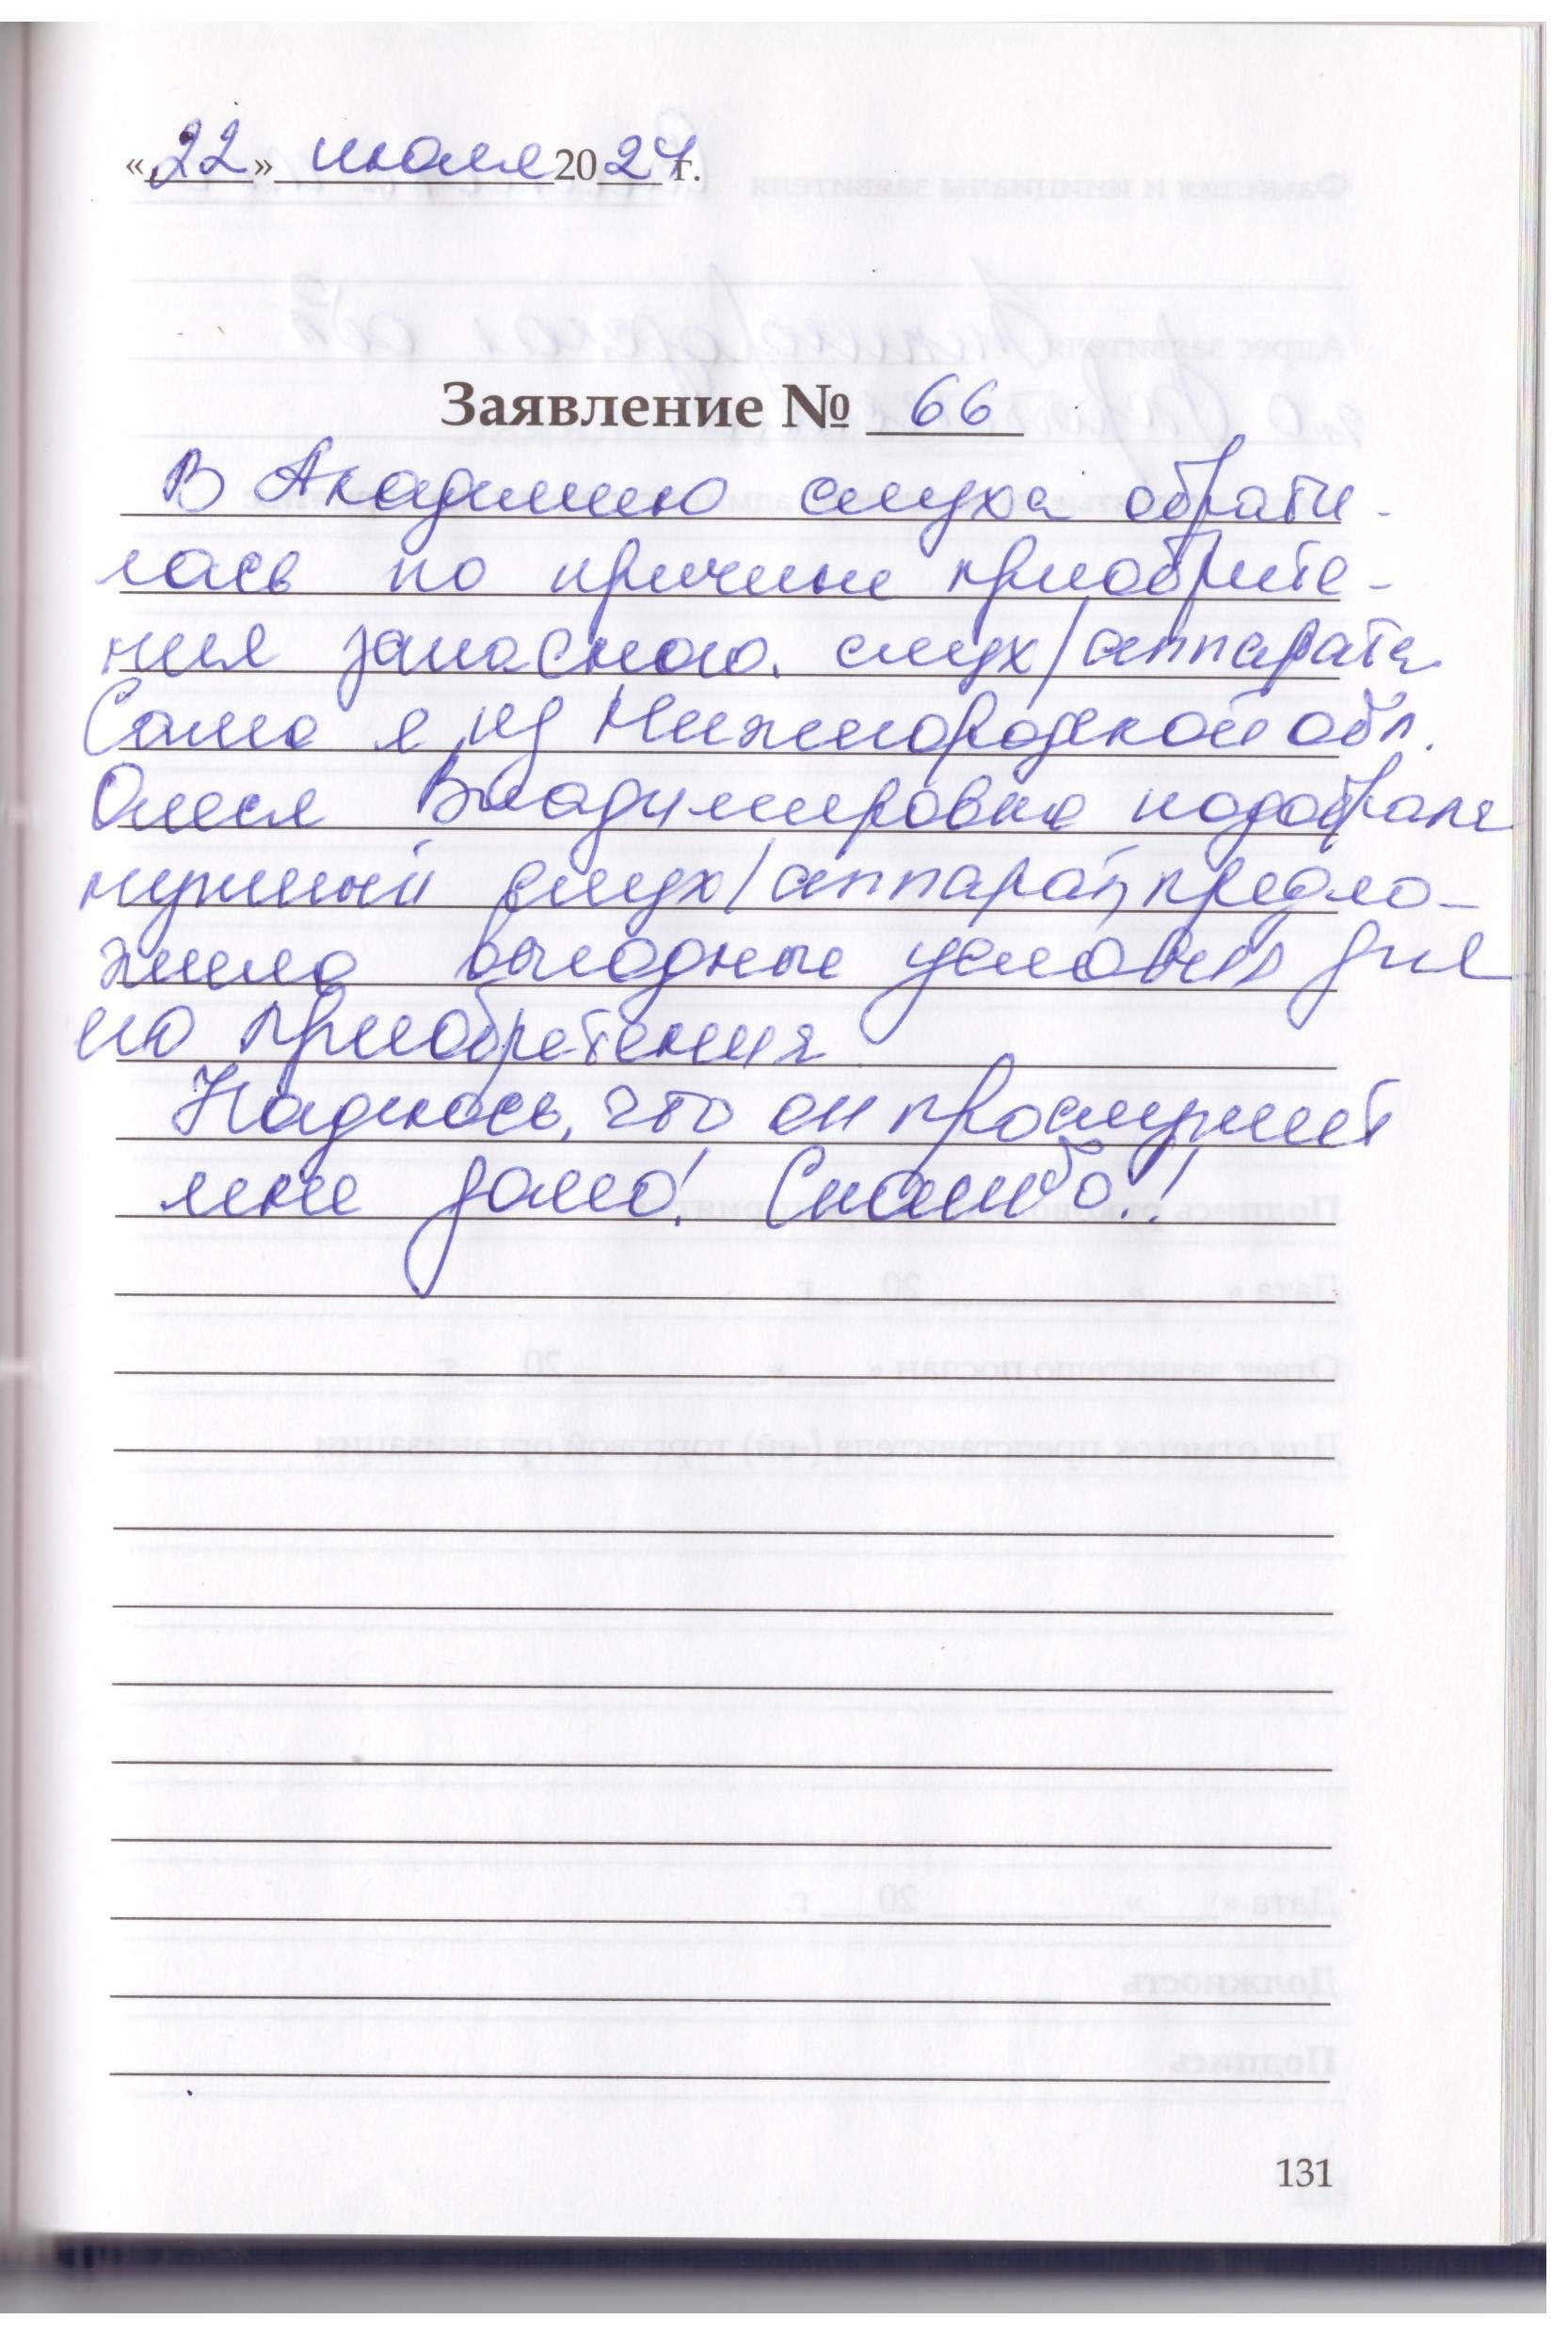 «22» июля 2024г.
Заявление № 66
В Академию слуха обрати-
лась по причине приобрите-
ния запасного слух/аппарата
Сама я из Нижегородской обл.
Олеся Владимировна подобрала
нужный слух/аппарат, предло-
жила выгодные условия для
его приобретения
Надеюсь, что он прослужит
мне долго! Спасибо!!
131